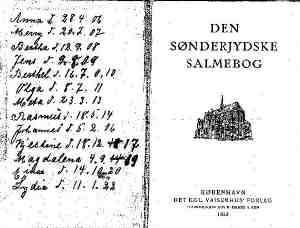 Anna d. 28 4 06
Meny d. 20.7. 07
Bertha d. 12.9.08
Jens d. 9.9.09
Berthel d. 16.7.0,10
Olga d. 8.7.11
Meta d. 23.3.13
Rasmus d. 18.5.14
Johannes d. 5.2.06
Kjestine d. 18.12.17
Magdalena 4.9.19
d. 14.10.20
Lydia d. 11.1.22
DEN
SØNDERJYDSKE
SALMEBOG
KØBENHAVN
DET KGL. VAISENHUS' FORLAG